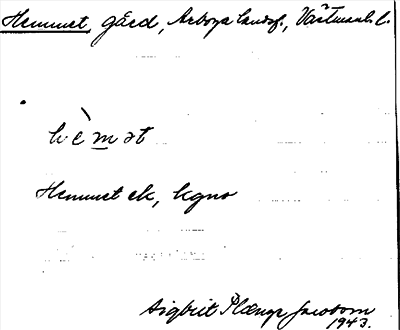 Hemmet, gård, Arboga landsf., Västmanl. l.
hè̱mət
Hemmet ek, kgno
Sigbrit Plænge Jacobson
1943.